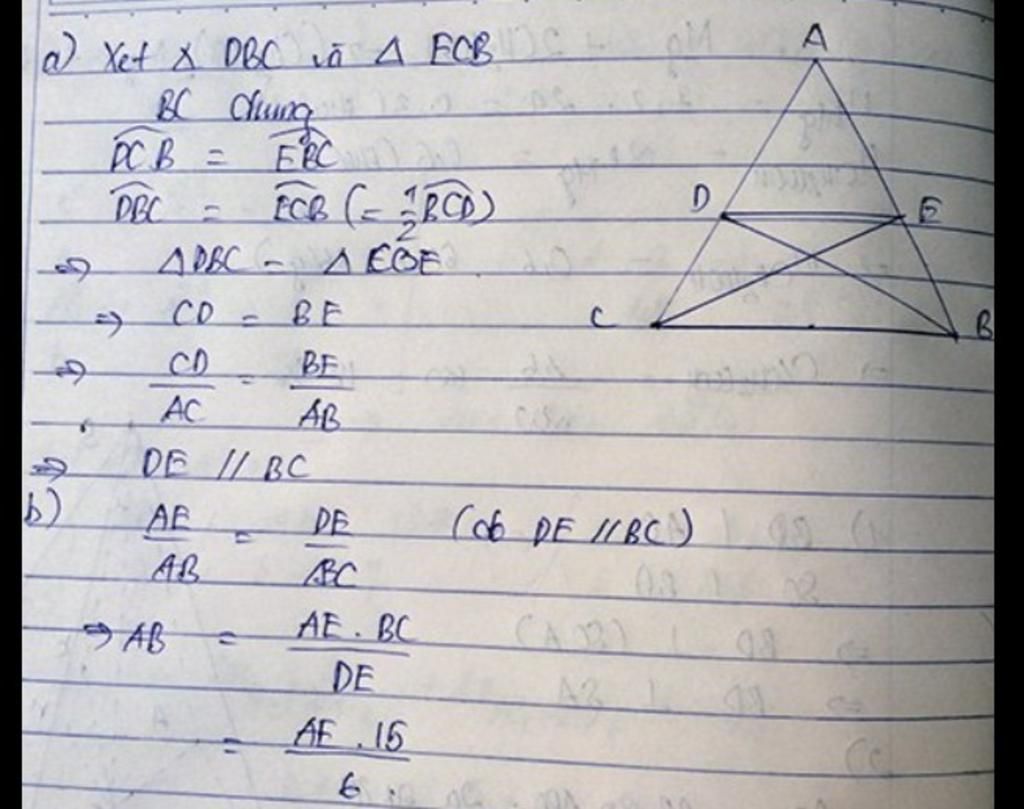 a) Xét △ DBC và △ ECB
BC chung
DCB = EBC
DBC = ECB (= 1/2 BCD)
=> △DBC = △ECBE
=> CD = BE
=> CD/AC = BE/AB
=> DE // BC
b) AE/AB = DE/BC (do DE // BC)
=> AB = AE . BC/DE
= AE . 15/6
A
D
E
C
B